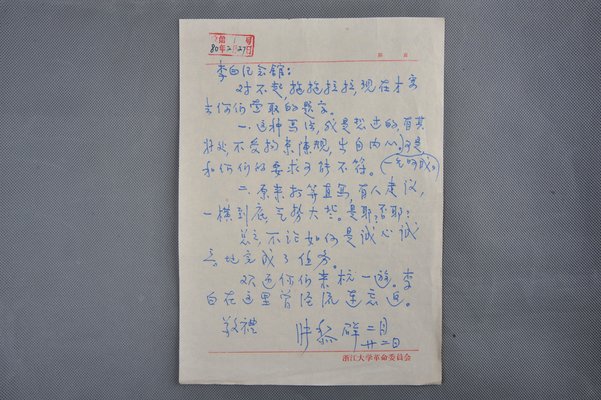 第 1 号
80年2月27日
第 页
李白纪念馆:
对不起,拖拖拉拉,现在才寄
去你们要取的题字。
一、这种写法,我是想过的,有其
好处,不受拘束陈规,出自内心。可是
和你们的要求可能不符。(一气呵成)
二、原来打算直写,有人建议,
一横到底,气势大些。是耶?否耶?
总之,不论如何是诚心诚
意地完成了任务。
欢迎你们来杭一游。李
白在这里曾经流连忘返。
敬礼
陈 二月
廿二日
浙江大学革命委员会